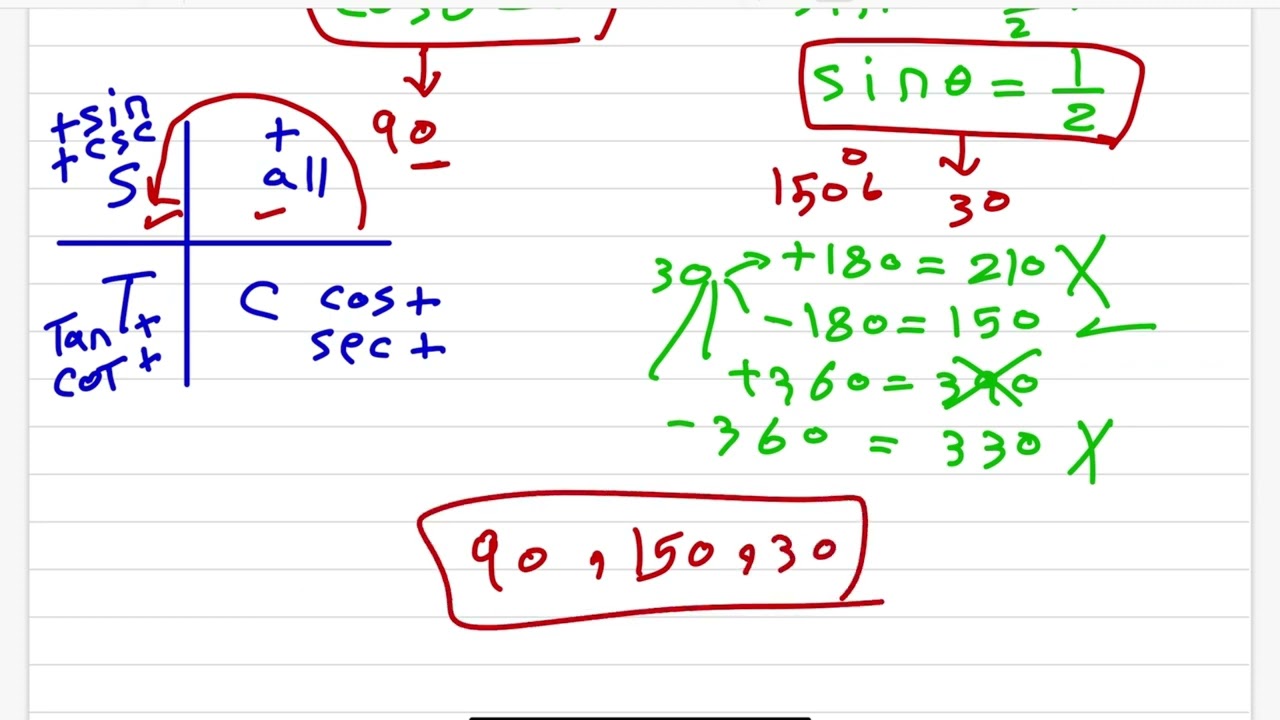 sinθ = 1/2
90
150° 30
+sin
+csc
S
+
all
T
Tan +
cot +
C cos+
sec +
30 → +180 = 210 X
-180 = 150 ✓
+360 = 390
-360 = 330 X
90 , 150 , 30